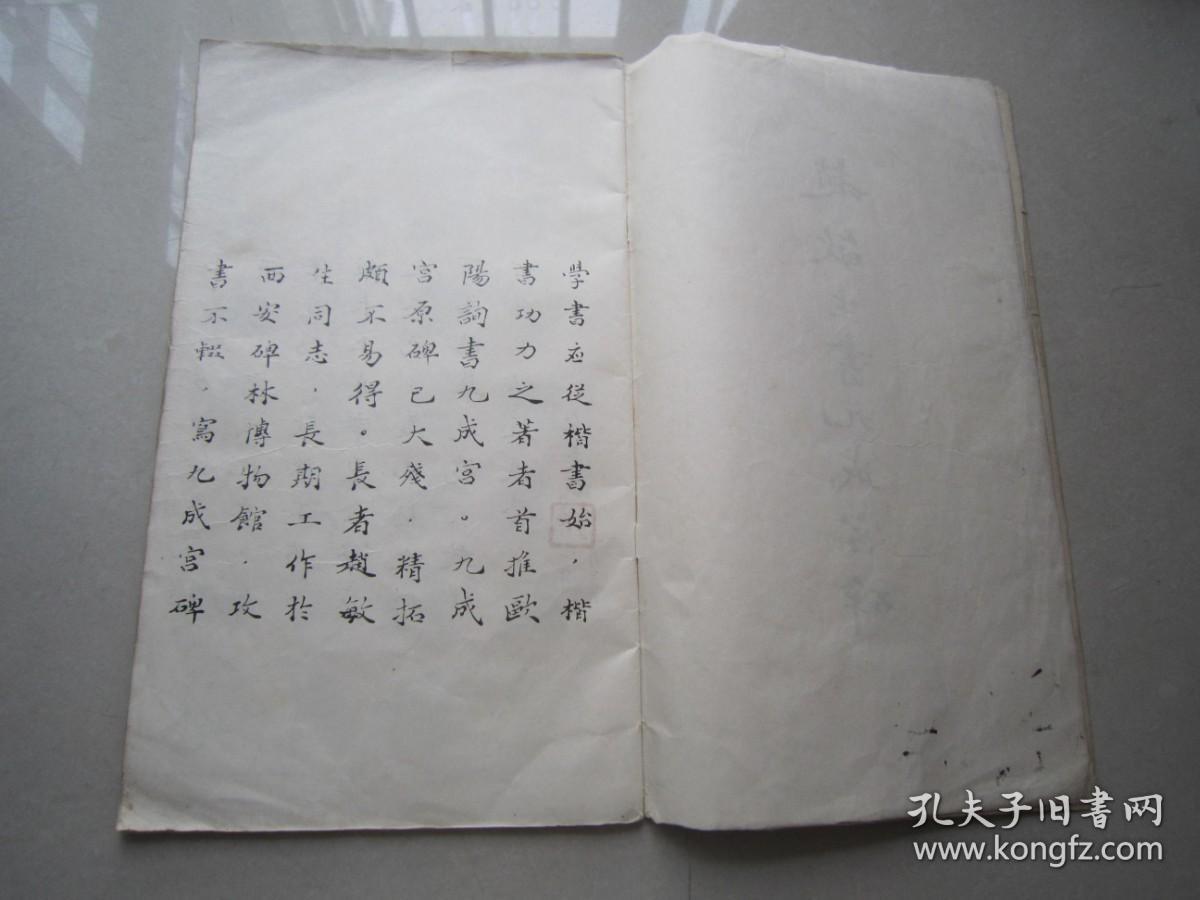 學書应從楷書始，楷
書功力之著者首推歐
陽詢書九成宫。九成
宫原碑已大殘，精拓
頗不易得。長者趙敏
生同志，長期工作於
西安碑林博物館，攻
書不輟，寫九成宫碑
孔夫子旧书网
www.kongfz.com